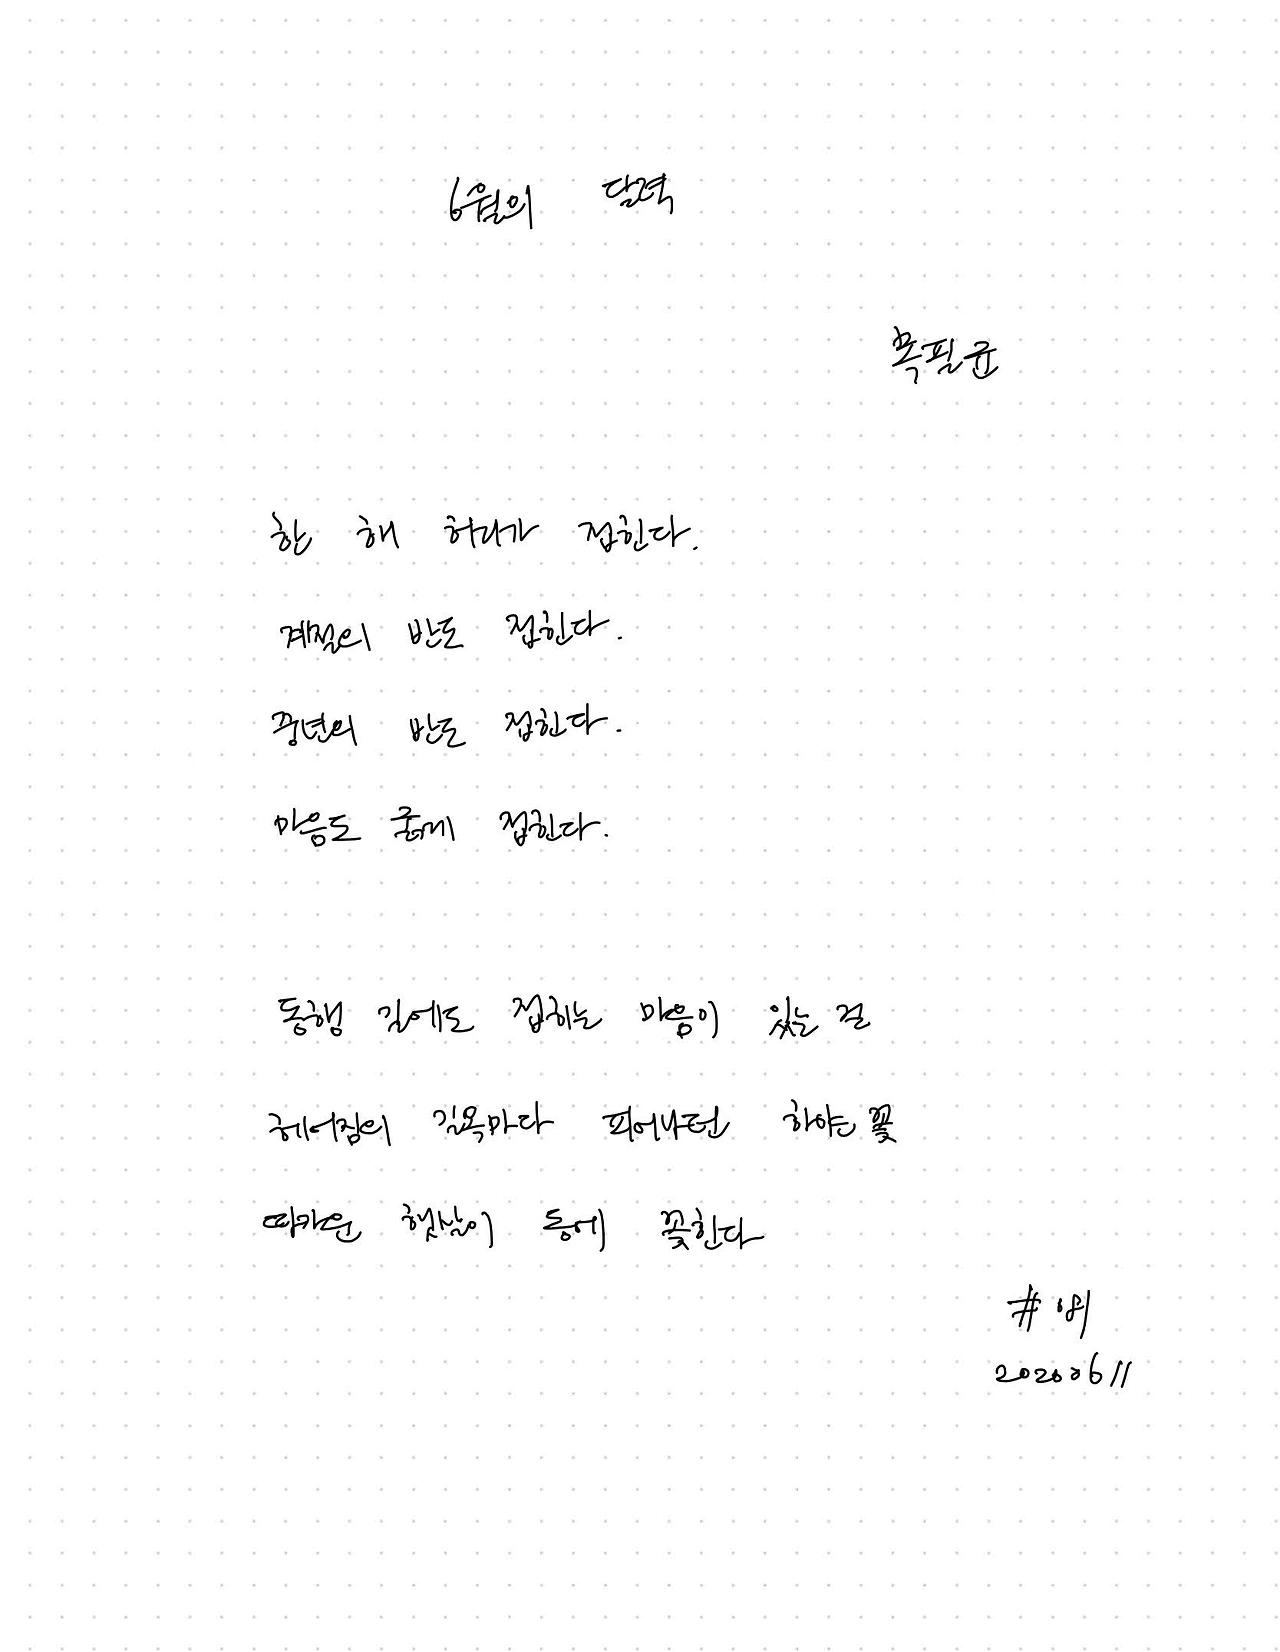 6월의 달력
목필균
한 해 허리가 접힌다.
계절의 반도 접힌다.
중년의 반도 접힌다.
마음도 굵게 접힌다.
동행 길에도 접히는 마음이 있는 걸
헤어짐의 길목마다 피어나던 하얀 꽃
따가운 햇살이 등에 꽂힌다
20200611